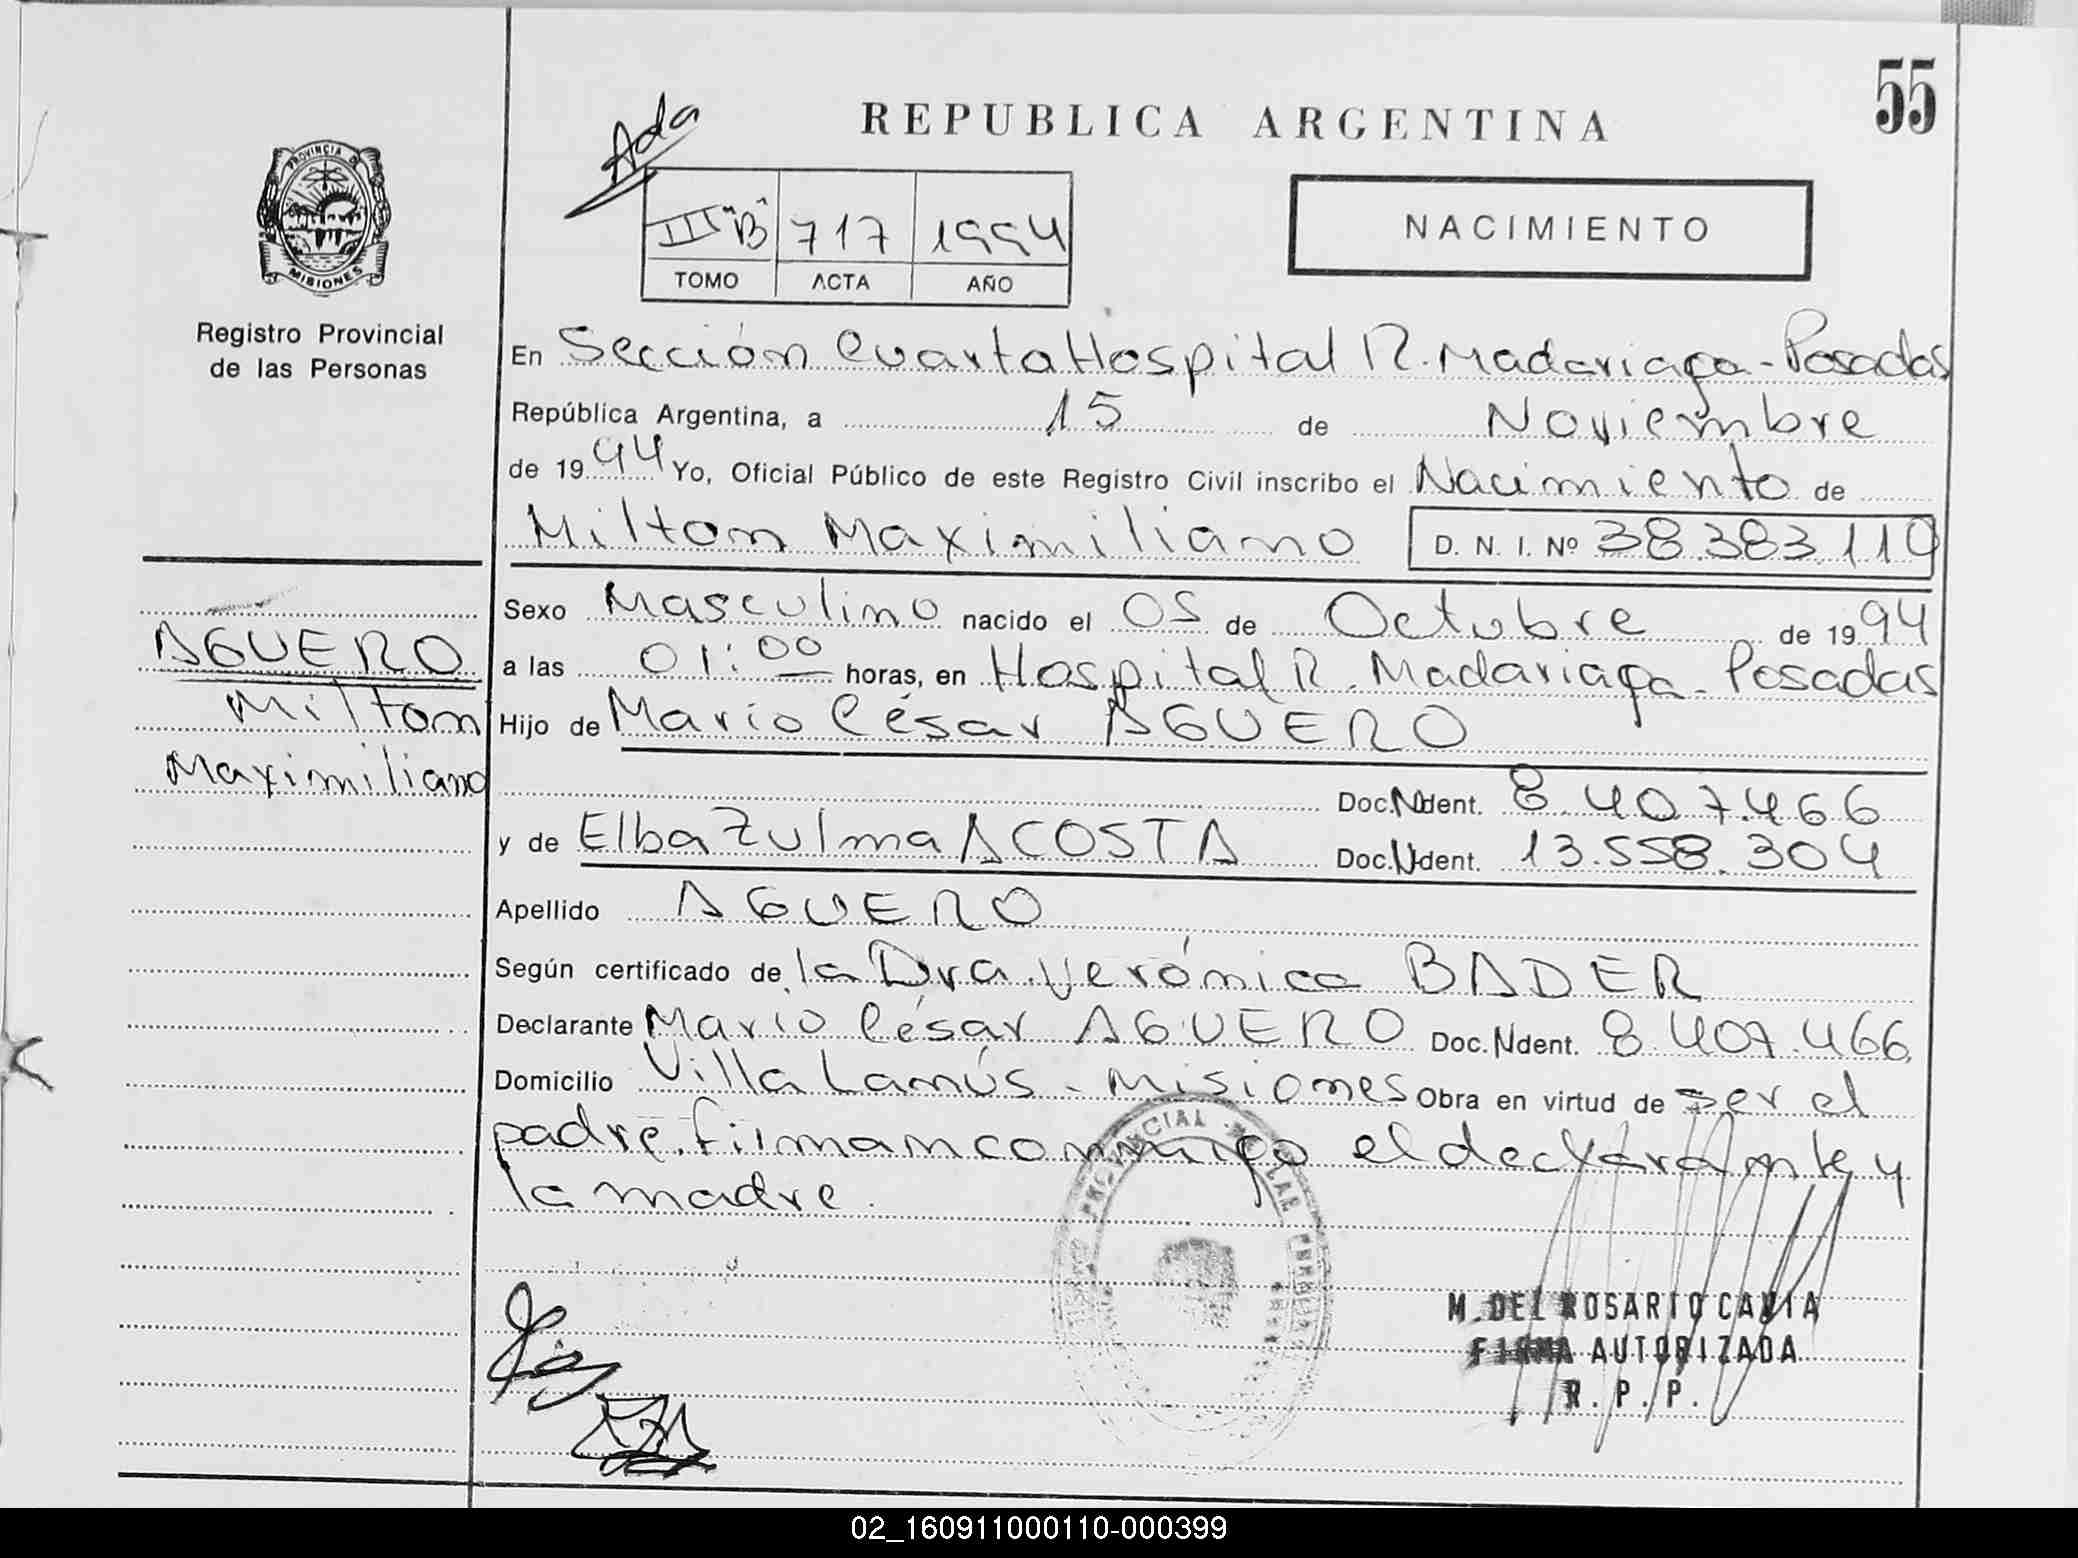 55
REPUBLICA ARGENTINA
Ada
PROVINCIA DE
MISIONES
III "B" 717 1994
TOMO ACTA AÑO
NACIMIENTO
Registro Provincial
de las Personas
En Sección Cuarta Hospital R. Madariaga - Posadas
República Argentina, a 15 de Noviembre
de 1994 Yo, Oficial Público de este Registro Civil inscribo el Nacimiento de
Milton Maximiliano D. N. I. Nº 38.383.110
Sexo Masculino nacido el 05 de Octubre de 1994
AGUERO
a las 01:00 horas, en Hospital R. Madariaga - Posadas
Milton
Hijo de Mario César AGUERO
Maximiliano
Doc. Ndent. 8.407.466
y de Elba Zulma ACOSTA Doc. Ndent. 13.558.304
Apellido AGUERO
Según certificado de la Dra. Verónica BADER
Declarante Mario César AGUERO Doc. Ndent. 8.407.466
Domicilio Villa Lanús - Misiones Obra en virtud de ser el
padre. firman conmigo el declarante y
la madre.
PROVINCIAL DE LAS
M. DEL ROSARIO CAVIA
FIRMA AUTORIZADA
R. P. P.
02_160911000110-000399